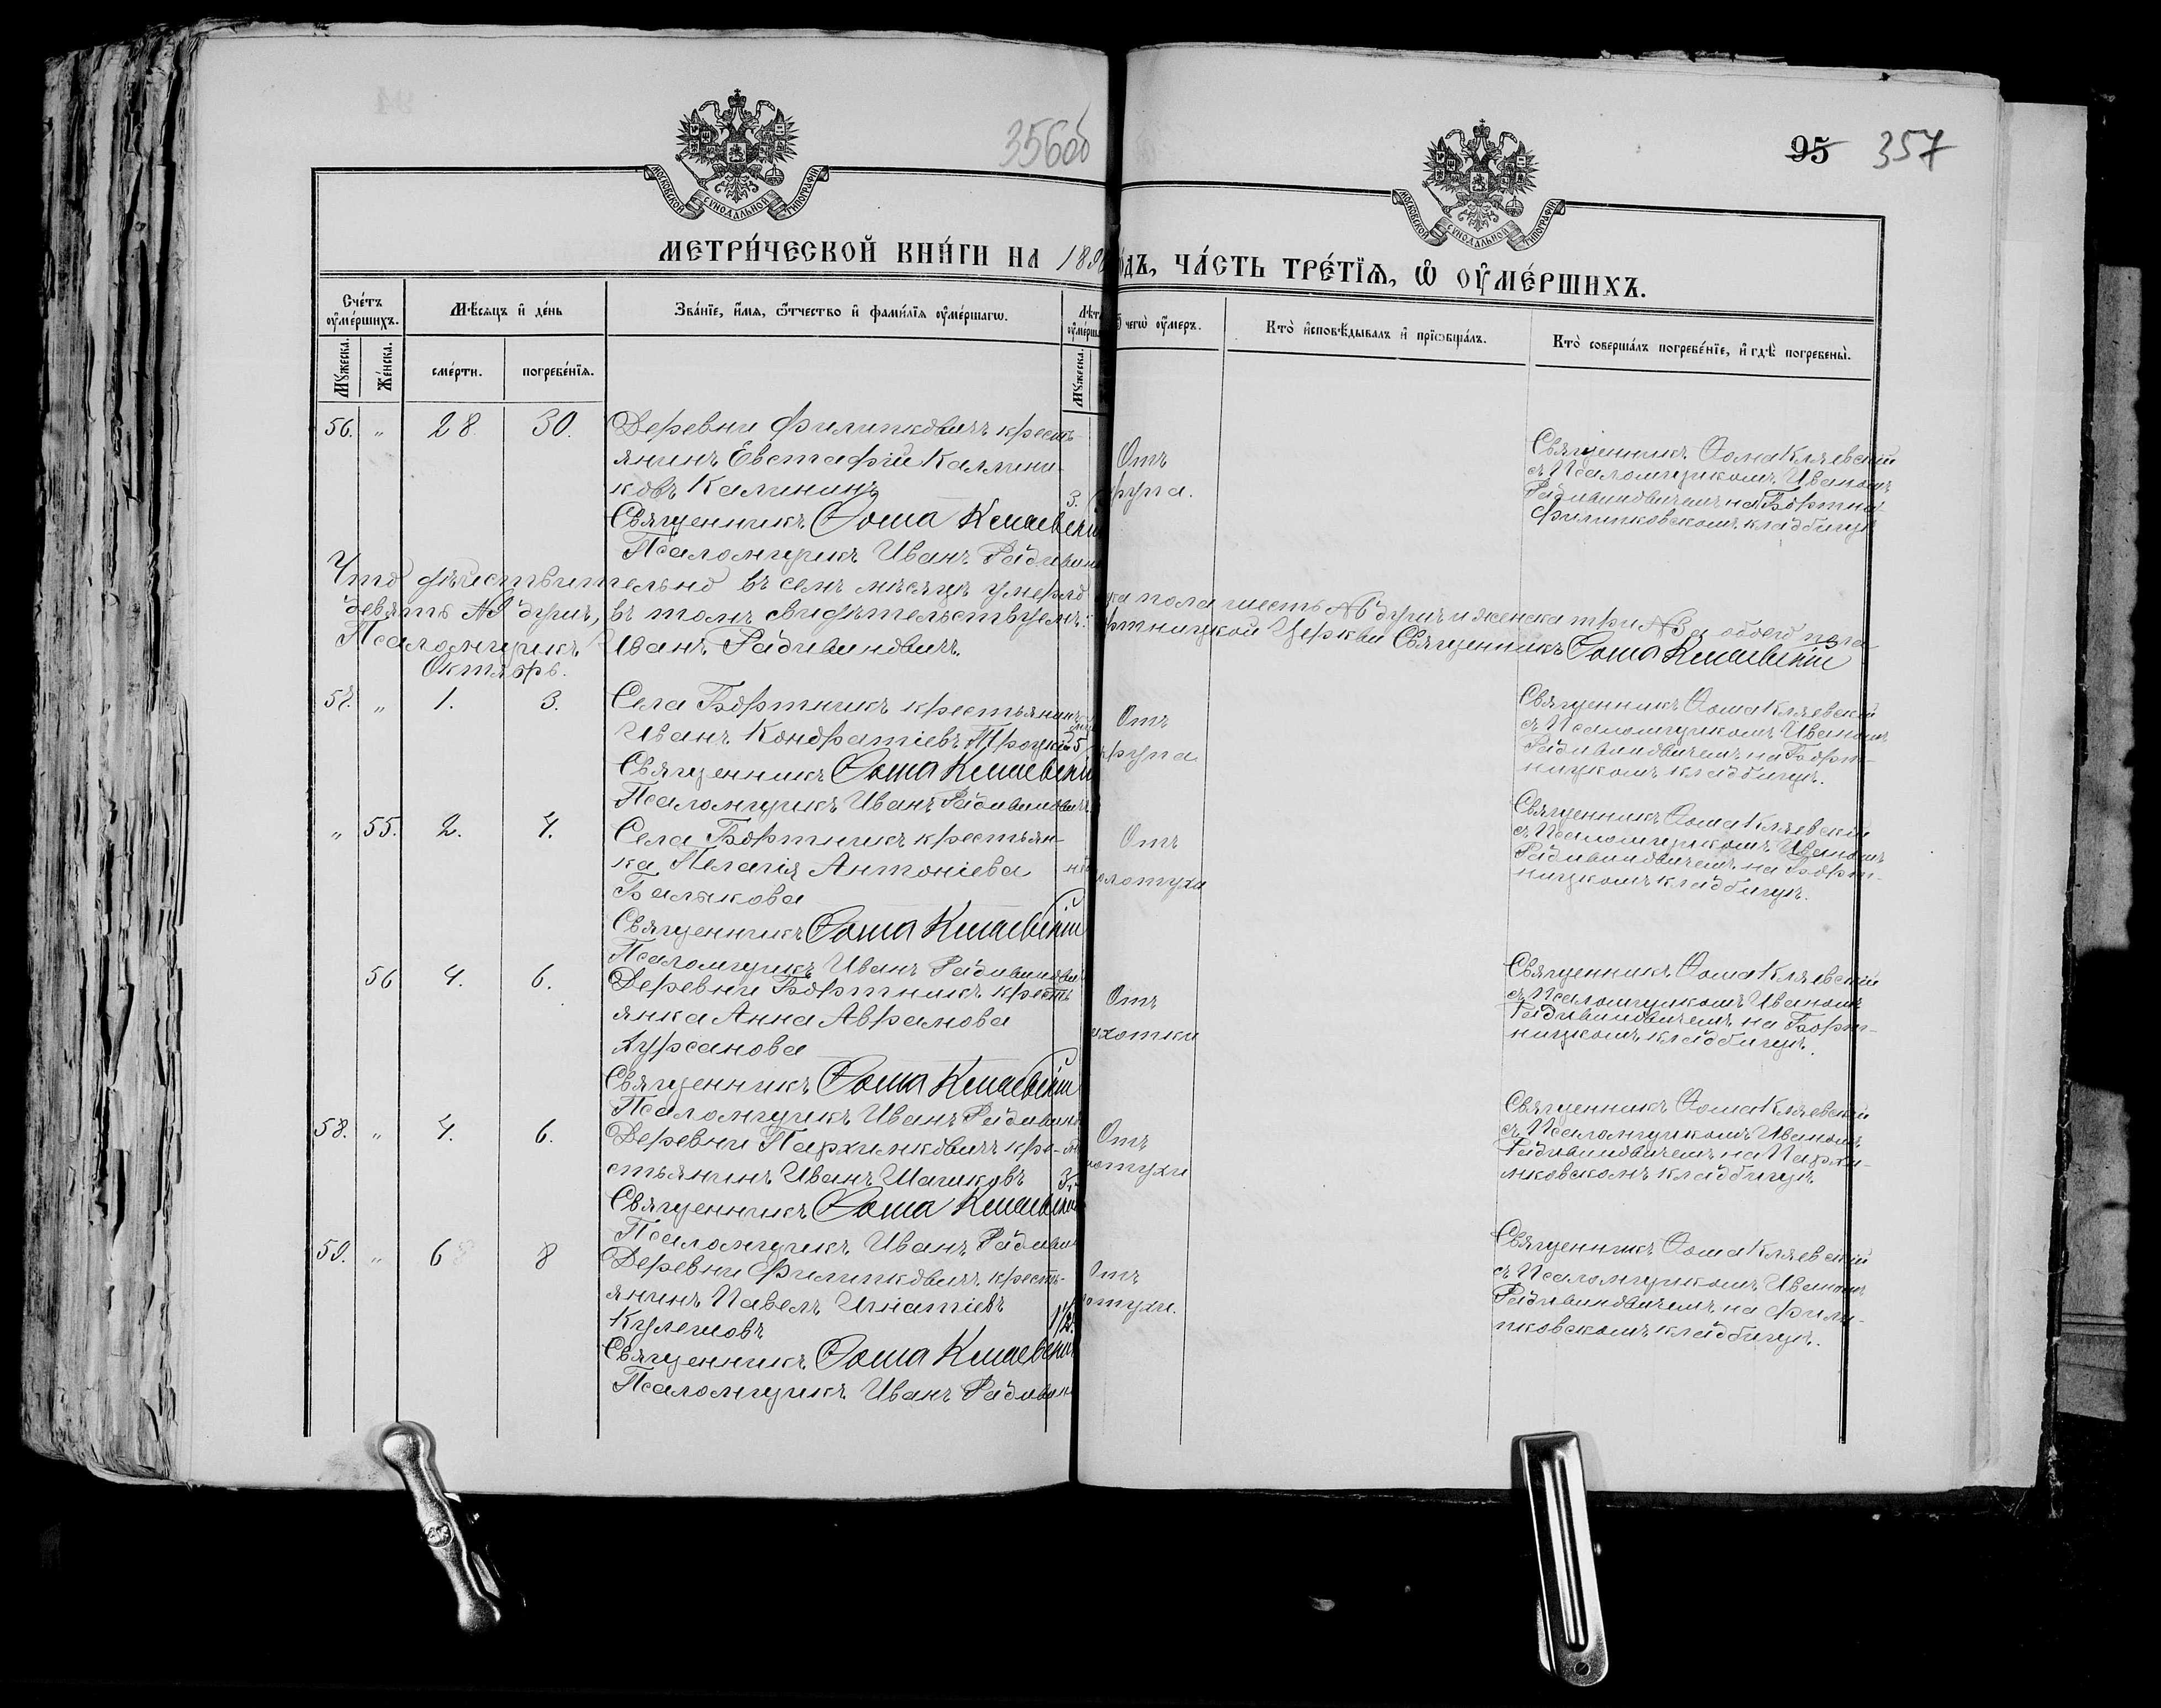 356об
95 357
МОСКОВСКОЙ СѴНОДАЛЬНОЙ ТИПОГРАФІИ
МОСКОВСКОЙ СѴНОДАЛЬНОЙ ТИПОГРАФІИ
МЕТРИ́ЧЕСКОЙ КНИ́ГИ НА 189
ОДЪ, ЧА́СТЬ ТРЕ́ТІѦ, Ѽ ОУ҆МЕ́РШИХЪ.
Сче́тъ оу҆ме́ршихъ.
Мꙋ́жеска.
Же́нска.
Мѣ́сѧцъ и҆ де́нь
сме́рти.
погребе́нїѧ.
Зва́нїе, и҆́мѧ, ѻ҆́тчество и҆ фами́лїѧ оу҆ме́ршагѡ.
Лѣт
оу҆ме́рша
Мꙋ́жеска.
чегѡ̀ оу҆́меръ.
Кто̀ и҆сповѣ́дывалъ и҆ прїѡбща́лъ.
Кто̀ соверша́лъ погребе́нїе, и҆ гдѣ̀ погребены̀.
56. „ 28 30. Деревни Филипковичъ кресть-
янинъ Евстафій Каллини-
ковъ Калининъ 3.
Священникъ Ѳома Кляевскій
Псаломщикъ Иванъ Радивин
Отъ
крупа.
Священникъ Ѳома Кляевскій
съ Псаломщикомъ Иваномъ
Радивиновичемъ на Бортни-
Филипковскомъ кладбищѣ
Что дѣйствительно въ семъ мѣсяцѣ умерло
ка пола шесть №6 душъ и женска три №3 а обоего пола
девять №9 душъ, въ томъ свидѣтельствуемъ:
ртницкой Церкви Священникъ Ѳома Кляевскій
Псаломщикъ Иванъ Радивиновичъ.
Октябрь.
57. „ 1. 3. Села Бортникъ крестьянинъ
Иванъ Кондратіевъ Троцкій 5
Священникъ Ѳома Кляевскій
Псаломщикъ Иванъ Радивиновичъ
Отъ
крупа
Священникъ Ѳома Кляевскій
съ Псаломщикомъ Иваномъ
Радивиновичемъ на Борт-
ницкомъ кладбищѣ.
„ 55. 2. 4. Села Бортникъ крестьян-
ка Пелагія Антоніева
Балыкова
Священникъ Ѳома Кляевскій
Псаломщикъ Иванъ Радивинови
Отъ
олотухи
Священникъ Ѳома Кляевскій
съ Псаломщикомъ Иваномъ
Радивиновичемъ на Борт-
ницкомъ кладбищѣ.
56 4. 6. Деревни Бортникъ кресть
янка Анна Аврамова
Курсанова
Священникъ Ѳома Кляевскій
Псаломщикъ Иванъ Радивин
Отъ
ахотки
Священникъ Ѳома Кляевскій
съ Псаломщикомъ Иваномъ
Радивиновичемъ на Борт-
ницкомъ кладбищѣ.
58. „ 4. 6. Деревни Пархимковичъ кре-
стьянинъ Иванъ Машковъ 3
Священникъ Ѳома Кляевскій
Псаломщикъ Иванъ Радиви
Отъ
отухи
Священникъ Ѳома Кляевскій
съ Псаломщикомъ Иваномъ
Радивиновичемъ на Пархи-
мковскомъ кладбищѣ.
59. „ 6 8 Деревни Филипковичъ кресть-
янинъ Павелъ Игнатіевъ
Кулешовъ 1½
Священникъ Ѳома Кляевскій
Псаломщикъ Иванъ Радивин
Отъ
отухи.
Священникъ Ѳома Кляевскій
съ Псаломщикомъ Иваномъ
Радивиновичемъ на Фили-
пковскомъ кладбищѣ.